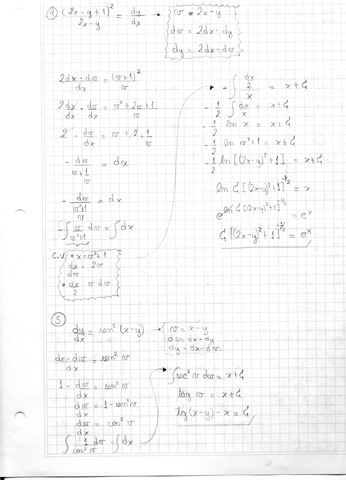 ① (2x-y+1)² / 2x-y = dy/dx
v = 2x-y
dv = 2dx-dy
dy = 2dx-dv
2dx-dv / dx = (v+1)² / v
2dx/dx - dv/dx = v²+2v+1 / v
2 - dv/dx = v+2+1/v
- dv / v+1/v = dx
- dv / v²+1/v = dx
-∫ v/v²+1 dv = ∫dx
C.V: * x = v²+1
dx/dv = 2v
* dx/2 = v dv
-∫ dx/2 / x = x+C₁
-1/2 ∫ dx/x = x+C₁
-1/2 ln x = x+C₁
-1/2 ln v²+1 = x+C₁
-1/2 ln [(2x-y)²+1] = x+C₁
ln C₁ [(2x-y)²+1]^-1/2 = x
e^ln C₁ [(2x-y)²+1]^-1/2 = e^x
C₁ [(2x-y)²+1]^-1/2 = e^x
⑤
dy/dx = sen² (x-y)
v = x-y
dv = dx-dy
dy = dx-dv
dx-dv / dx = sen² v
1 - dv/dx = sen² v
dv/dx = 1-sen² v
dv/dx = cos² v
∫ 1/cos² v dv = ∫dx
∫sec² v dv = x+C₁
tag v = x+C₁
tg(x-y) - x = C₁